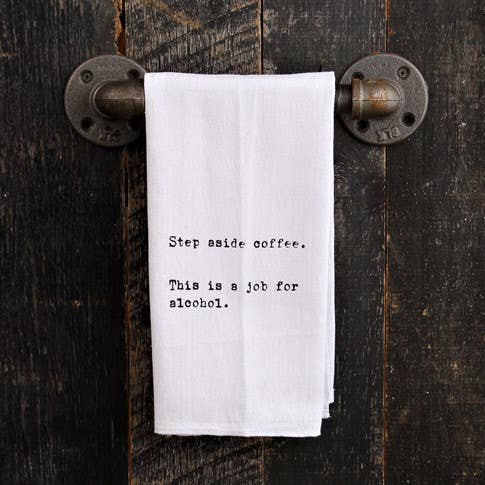 Step aside coffee.
This is a job for
alcohol.